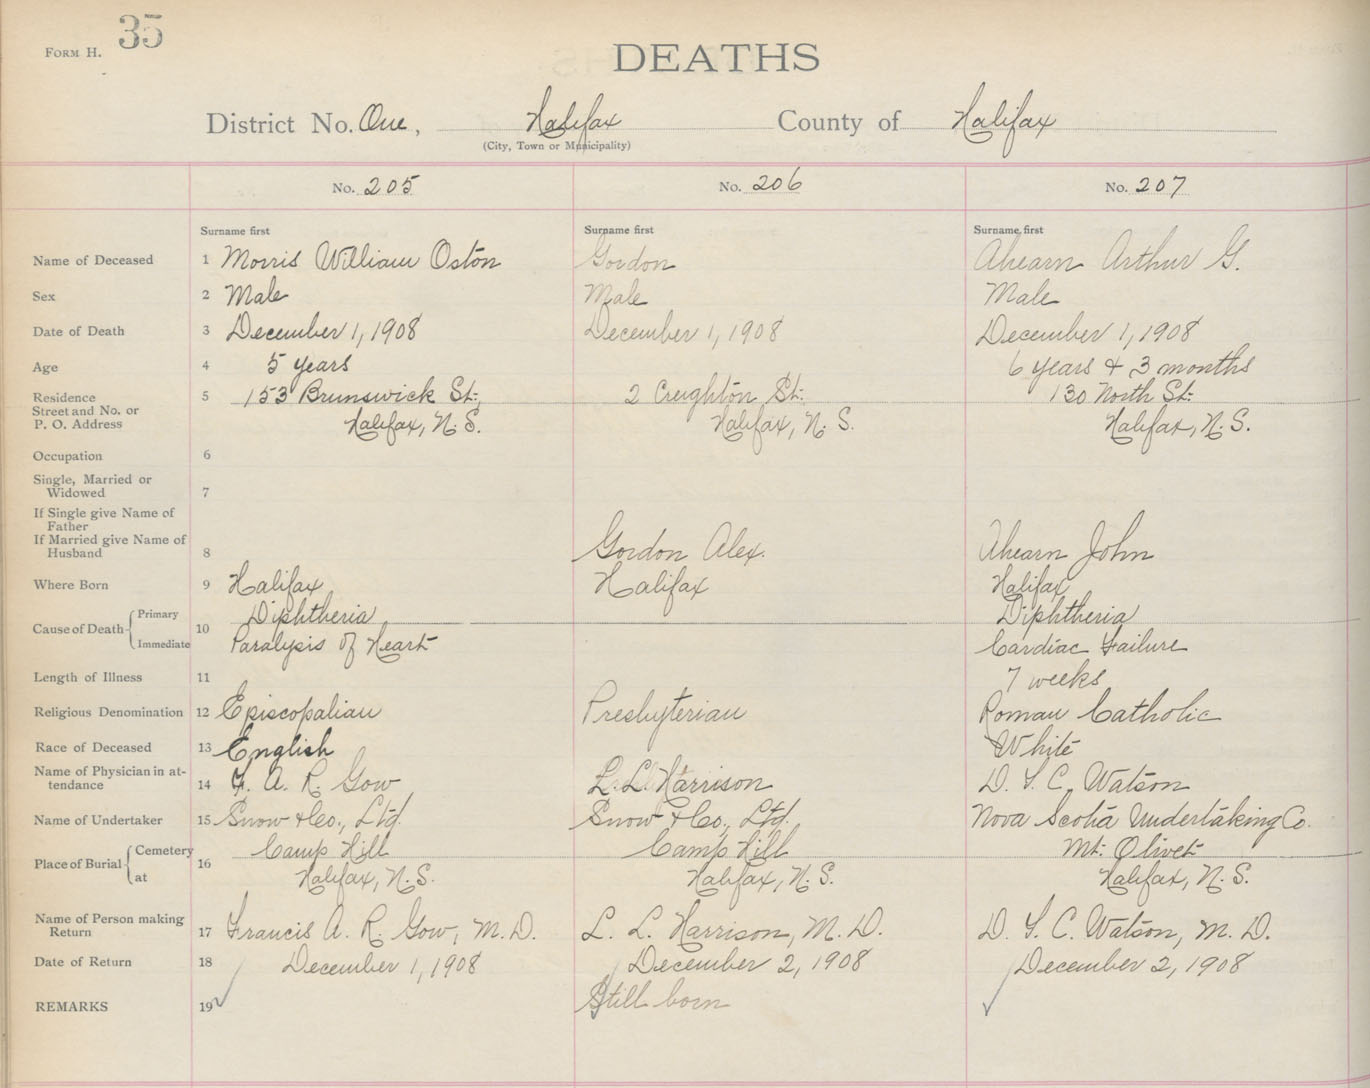 FORM H. 35
DEATHS
District No. One, Halifax County of Halifax
(City, Town or Municipality)
No. 205 No. 206 No. 207
Surname first Surname first Surname first
Name of Deceased 1 Morris William Oston Gordon Ahearn Arthur G.
Sex 2 Male Male Male
Date of Death 3 December 1, 1908 December 1, 1908 December 1, 1908
Age 4 5 years 6 years & 3 months
Residence 5 153 Brunswick St., 2 Creighton St. 130 North St.
Street and No. or
P. O. Address Halifax, N. S. Halifax, N. S. Halifax, N. S.
Occupation 6
Single, Married or
Widowed 7
If Single give Name of
Father
If Married give Name of
Husband 8 Gordon Alex. Ahearn John
Where Born 9 Halifax Halifax Halifax
Cause of Death Primary 10 Diphtheria Diphtheria
Immediate Paralysis of Heart Cardiac Failure
Length of Illness 11 7 weeks
Religious Denomination 12 Episcopalian Presbyterian Roman Catholic
Race of Deceased 13 English White
Name of Physician in at-
tendance 14 F. A. R. Gow L. L. Harrison D. F. C. Watson
Name of Undertaker 15 Snow & Co., Ltd. Snow & Co., Ltd. Nova Scotia Undertaking Co.
Place of Burial Cemetery 16 Camp Hill Camp Hill Mt. Olivet
at Halifax, N. S. Halifax, N. S. Halifax, N. S.
Name of Person making
Return 17 Francis A. R. Gow, M. D. L. L. Harrison, M. D. D. F. C. Watson, M. D.
Date of Return 18 December 1, 1908 December 2, 1908 December 2, 1908
REMARKS 19 Still born